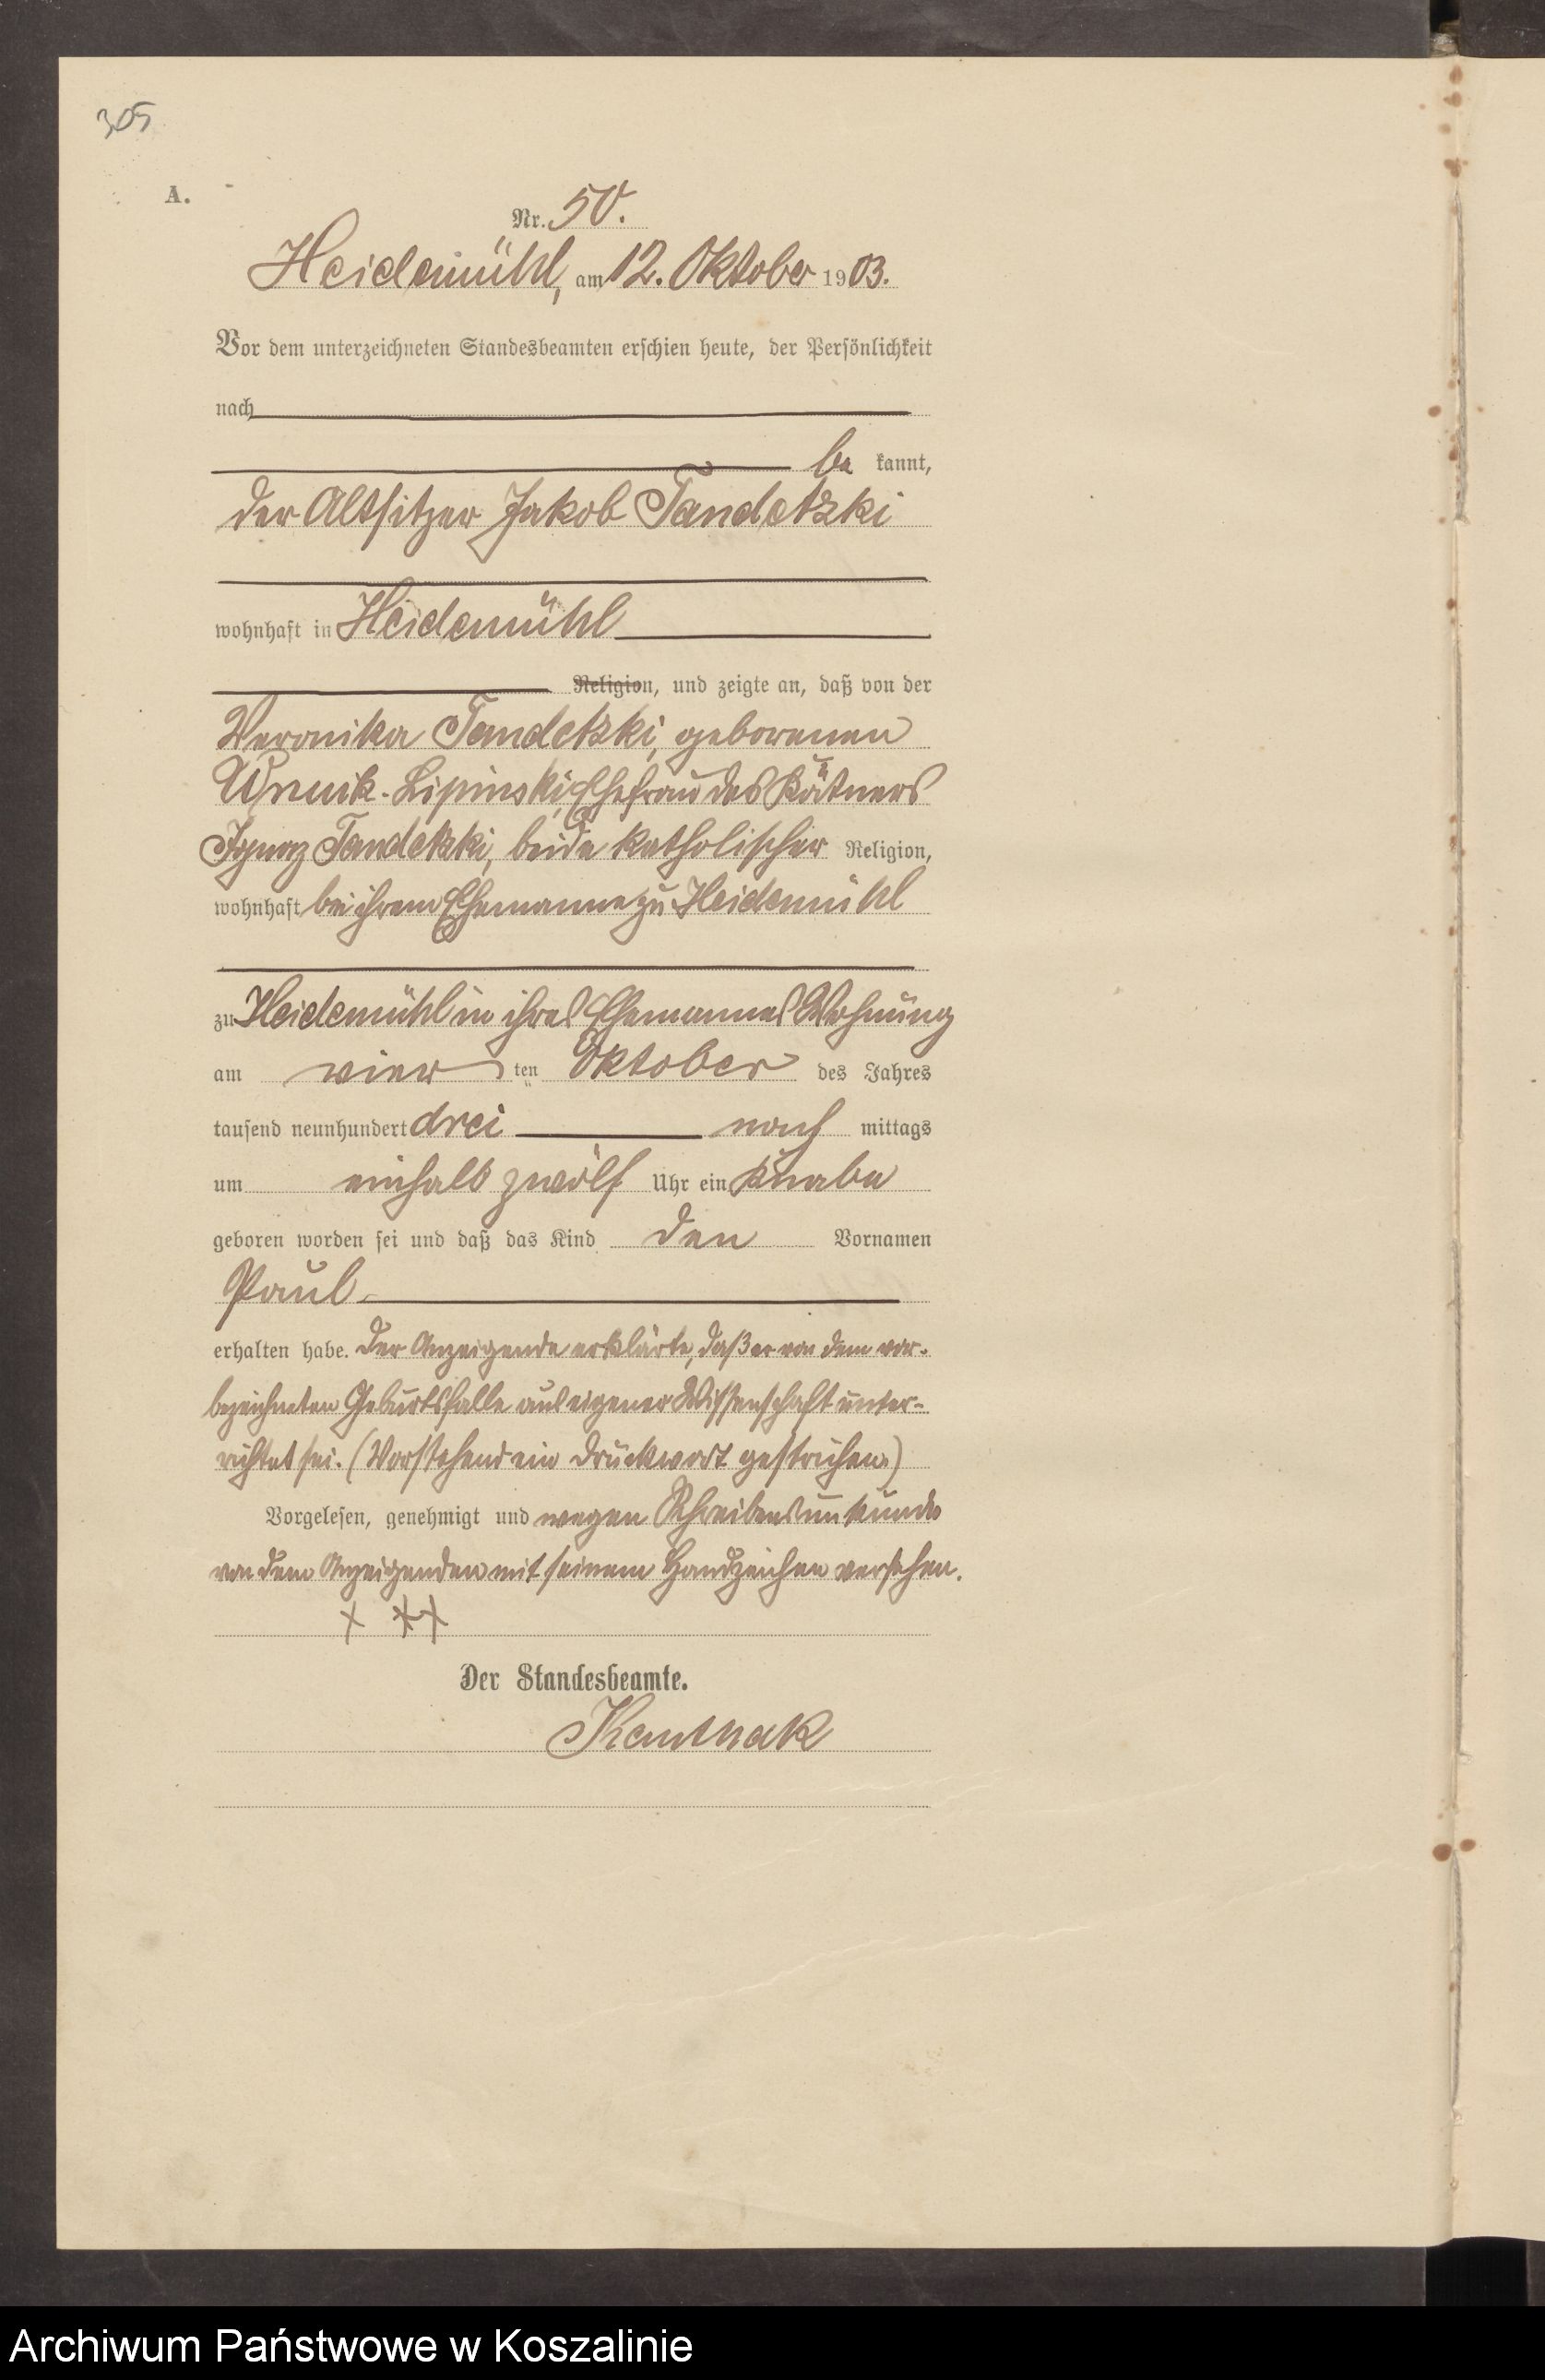 305
A.
Nr. 50.
Heidemühl, am 12. Oktober 1903.
Vor dem unterzeichneten Standesbeamten erschien heute, der Persönlichkeit
nach
be kannt,
der Altsitzer Jakob Tandetzki
wohnhaft in Heidemühl
Religion, und zeigte an, daß von der
Veronika Tandetzki, geborenen
Wnuk-Lipinski, Ehefrau des Kätners
Ignaz Tandetzki, beide katholischer Religion,
wohnhaft bei ihrem Ehemanne zu Heidemühl
zu Heidemühl in ihres Ehemannes Wohnung
am vier ten Oktober des Jahres
tausend neunhundert drei nach mittags
um einhalb zwölf Uhr ein Knabe
geboren worden sei und daß das Kind den Vornamen
Paul
erhalten habe. Der Anzeigende erklärte, daß er von dem vor-
bezeichneten Geburtsfalle aus eigener Wissenschaft unter-
richtet sei. (Vorstehend ein Druckwort gestrichen.)
Vorgelesen, genehmigt und wegen Schreibensunkunde
von dem Anzeigenden mit seinem Handzeichen versehen.
+ ++
Der Standesbeamte.
Archiwum Państwowe w Koszalinie